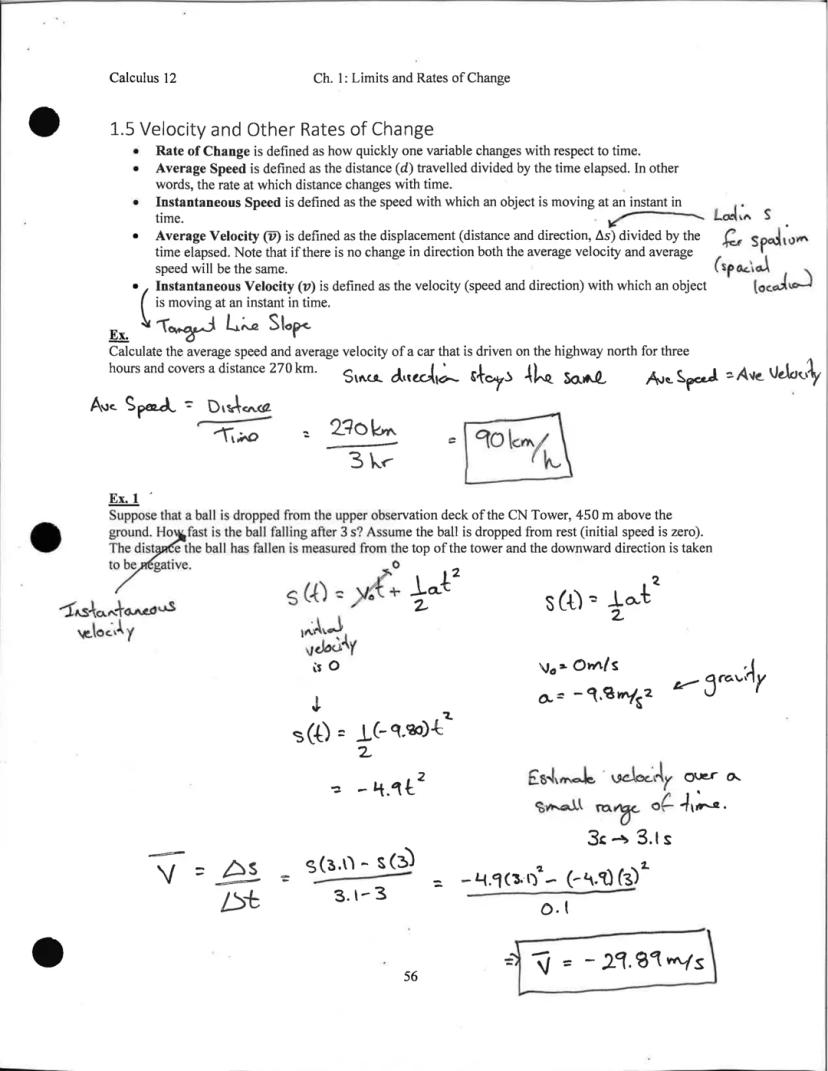 Calculus 12 Ch. 1: Limits and Rates of Change
1.5 Velocity and Other Rates of Change
• Rate of Change is defined as how quickly one variable changes with respect to time.
• Average Speed is defined as the distance (d) travelled divided by the time elapsed. In other
words, the rate at which distance changes with time.
• Instantaneous Speed is defined as the speed with which an object is moving at an instant in
time.
• Average Velocity (v̅) is defined as the displacement (distance and direction, Δs) divided by the
time elapsed. Note that if there is no change in direction both the average velocity and average
speed will be the same.
Latin S
for spatium
(spacial
location)
• Instantaneous Velocity (v) is defined as the velocity (speed and direction) with which an object
is moving at an instant in time.
Tangent Line Slope
Ex.
Calculate the average speed and average velocity of a car that is driven on the highway north for three
hours and covers a distance 270 km.
Since direction stays the same Ave Speed = Ave Velocity
Ave Speed = Distance / Time = 270 km / 3 hr = 90 km/h
Ex. 1
Suppose that a ball is dropped from the upper observation deck of the CN Tower, 450 m above the
ground. How fast is the ball falling after 3 s? Assume the ball is dropped from rest (initial speed is zero).
The distance the ball has fallen is measured from the top of the tower and the downward direction is taken
to be negative.
Instantaneous
velocity
s(t) = v₀t + ½at²
0
initial
velocity
is 0
↓
s(t) = ½at²
v₀ = 0m/s
a = -9.8m/s² ← gravity
s(t) = ½(-9.80)t²
= -4.9t²
Estimate velocity over a
small range of time.
3s → 3.1s
V̅ = Δs / Δt = S(3.1) - S(3) / 3.1-3 = -4.9(3.1)² - (-4.9)(3)² / 0.1
⇒ V̅ = -29.89 m/s
56